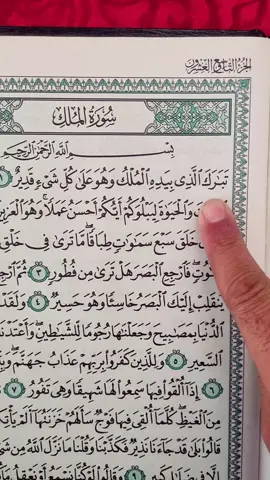 الجزء التاسع والعشرون
سُورَةُ المُلْكِ
بِسْمِ اللَّهِ الرَّحْمَٰنِ الرَّحِيمِ
تَبَٰرَكَ الَّذِي بِيَدِهِ الْمُلْكُ وَهُوَ عَلَىٰ كُلِّ شَيْءٍ قَدِيرٌ ١
وَالْحَيَوٰةَ لِيَبْلُوَكُمْ أَيُّكُمْ أَحْسَنُ عَمَلًا وَهُوَ الْعَزِيزُ
خَلَقَ سَبْعَ سَمَٰوَٰتٍ طِبَاقًا مَّا تَرَىٰ فِي خَلْقِ
فَارْجِعِ الْبَصَرَ هَلْ تَرَىٰ مِن فُطُورٍ ٣ ثُمَّ ارْجِعِ
يَنقَلِبْ إِلَيْكَ الْبَصَرُ خَاسِئًا وَهُوَ حَسِيرٌ ٤ وَلَقَدْ
الدُّنْيَا بِمَصَٰبِيحَ وَجَعَلْنَٰهَا رُجُومًا لِّلشَّيَٰطِينِ وَأَعْتَدْنَا
السَّعِيرِ ٥ وَلِلَّذِينَ كَفَرُوا بِرَبِّهِمْ عَذَابُ جَهَنَّمَ وَبِئْسَ
٦ إِذَا أُلْقُوا فِيهَا سَمِعُوا لَهَا شَهِيقًا وَهِيَ تَفُورُ ٧
مِنَ الْغَيْظِ كُلَّمَا أُلْقِيَ فِيهَا فَوْجٌ سَأَلَهُمْ خَزَنَتُهَا أَلَمْ يَأْتِكُمْ
قَالُوا بَلَىٰ قَدْ جَاءَنَا نَذِيرٌ فَكَذَّبْنَا وَقُلْنَا مَا نَزَّلَ اللَّهُ مِن شَيْءٍ
إِلَّا فِي ضَلَٰلٍ كَبِيرٍ ٩ وَقَالُوا لَوْ كُنَّا نَسْمَعُ أَوْ نَعْقِلُ